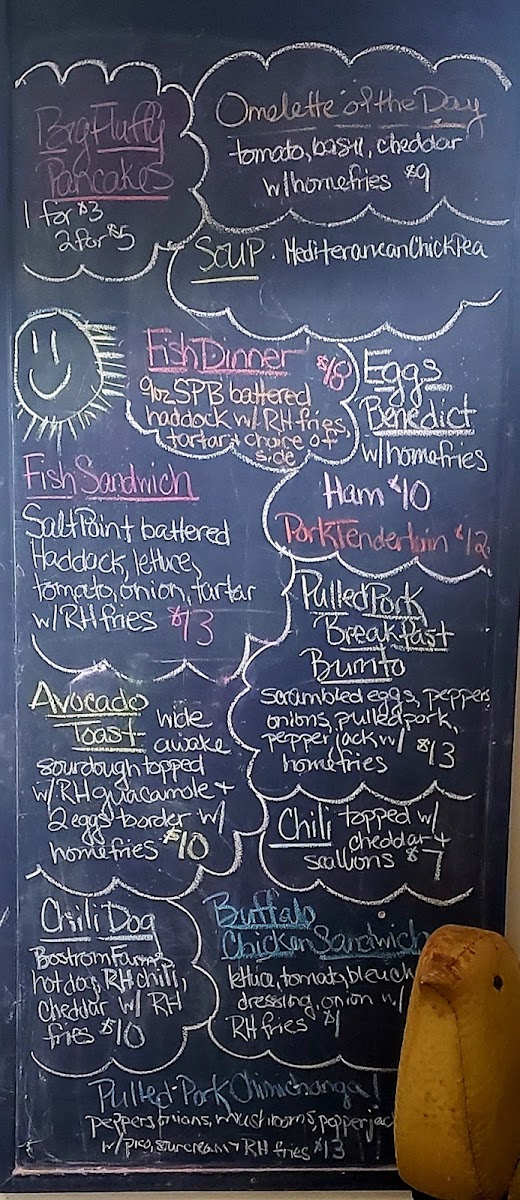 Big Fluffy
Pancakes
1 for $3
2 for $5
Omelette of the Day
tomato, basil, cheddar
w/homefries $9
Soup. Mediteranean Chick Pea
Fish Dinner $18
9oz SPB battered
haddock w/ RH fries,
tartar + choice of
side
Eggs
Benedict
w/homefries
Ham $10
Pork Tenderloin $12
Fish Sandwich
Salt Point battered
Haddock, lettuce,
tomato, onion, tartar
w/RH fries $13
Pulled Pork
Breakfast
Burrito
scrambled eggs, peppers,
onions, pulled pork,
pepper jack w/ $13
homefries
Avocado
Toast wide
awake
sourdough topped
w/RH guacamole +
2 eggs border w/
homefries $10
Chili topped w/
cheddar +
scallions $7
Chili Dog
Bostrom Farms
hot dog, RH chili,
cheddar w/ RH
fries $10
Buffalo
Chicken Sandwich
lettuce, tomato, bleu ch
dressing, onion w/
RH fries $1
Pulled Pork Chimichanga!
peppers, onions, mushrooms, pepperjac
w/pico, sour cream + RH fries $13